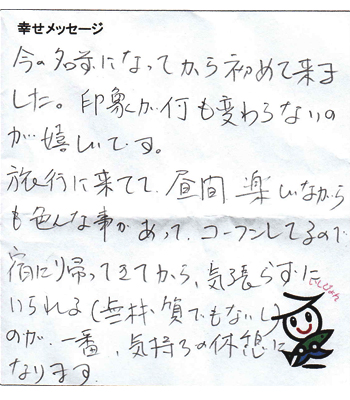 幸せメッセージ
今の名前になってから初めて来ま
した。印象が何も変わらないの
が嬉しいです。
旅行に来てて、昼間 楽しいながら
も色んな事があって、コーフンしてるので
宿に帰ってきてから、気張らずに
いられる(無対質でもないし)
のが、一番、気持ちの休憩に
なります。